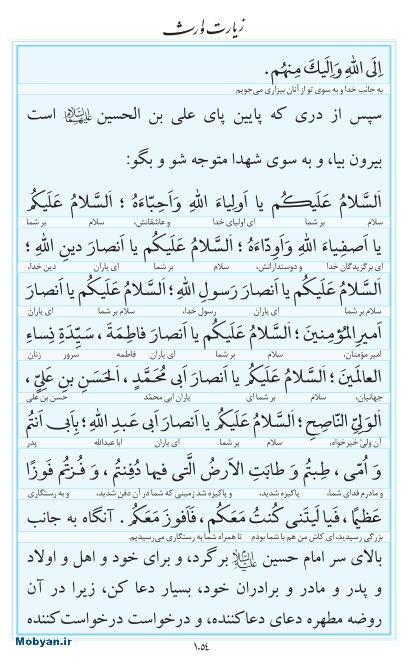 زیارت وارث
اِلَی اللهِ وَاِلَیْكَ مِنهُم.
به جانب خدا و به سوی تو از آنان بیزاری می‌جویم
سپس از دری که پایین پای علی بن الحسین علیهما السلام است
بیرون بیا، و به سوی شهدا متوجه شو و بگو:
اَلسَّلامُ عَلَیکُم یا اَولِیاءَ اللهِ وَاَحِبّاءَهُ ؛ اَلسَّلامُ عَلَیکُم
سلام بر شما ای اولیای خدا و عاشقانش، سلام بر شما
یا اَصفِیاءَ اللهِ وَاَوِدّاءَهُ ؛ اَلسَّلامُ عَلَیکُم یا اَنصارَ دینِ اللهِ ؛
ای برگزیدگان خدا و دوستدارانش، سلام بر شما ای یاران دین خدا،
اَلسَّلامُ عَلَیکُم یا اَنصارَ رَسولِ اللهِ ؛ اَلسَّلامُ عَلَیکُم یا اَنصارَ
سلام بر شما ای یاران رسول خدا، سلام بر شما ای یاران
اَمیرِالمُؤمِنینَ ؛ اَلسَّلامُ عَلَیکُم یا اَنصارَ فاطِمَةَ ، سَیِّدَةِ نِساءِ
امیر مؤمنان، سلام بر شما ای یاران فاطمه سرور زنان
العالَمینَ ؛ اَلسَّلامُ عَلَیکُم یا اَنصارَ اَبی مُحَمَّدٍ ، اَلحَسَنِ بنِ عَلِیٍّ ،
جهانیان، سلام بر شما ای یاران ابی محمّد حسن بن علی
اَلوَلِیِّ النّاصِحِ ؛ اَلسَّلامُ عَلَیکُم یا اَنصارَ اَبی عَبدِ اللهِ ؛ بِاَبی اَنتُم
آن ولیّ خیرخواه، سلام بر شما ای یاران ابا عبدالله پدر
وَ اُمّی ، طِبتُم وَ طابَتِ الاَرضُ الَّتی فیها دُفِنتُم ، وَ فُزتُم فَوزًا
و مادرم فدای شما، پاکیزه شدید، و پاکیزه شد زمینی که شما در آن دفن شدید، و به رستگاری
عَظیمًا ، فَیا لَیتَنی کُنتُ مَعَکُم ، فَاَفوزَ مَعَکُم . آنگاه به جانب
بزرگی رسیدید، ای کاش من هم با شما بودم تا همراه شما به رستگاری می‌رسیدم.
بالای سر امام حسین علیه السلام برگرد، و برای خود و اهل و اولاد
و پدر و مادر و برادران خود، بسیار دعا کن، زیرا در آن
روضه مطهره دعای دعاکننده، و درخواست درخواست‌کننده
Mobyan.ir
۱۰۵۴